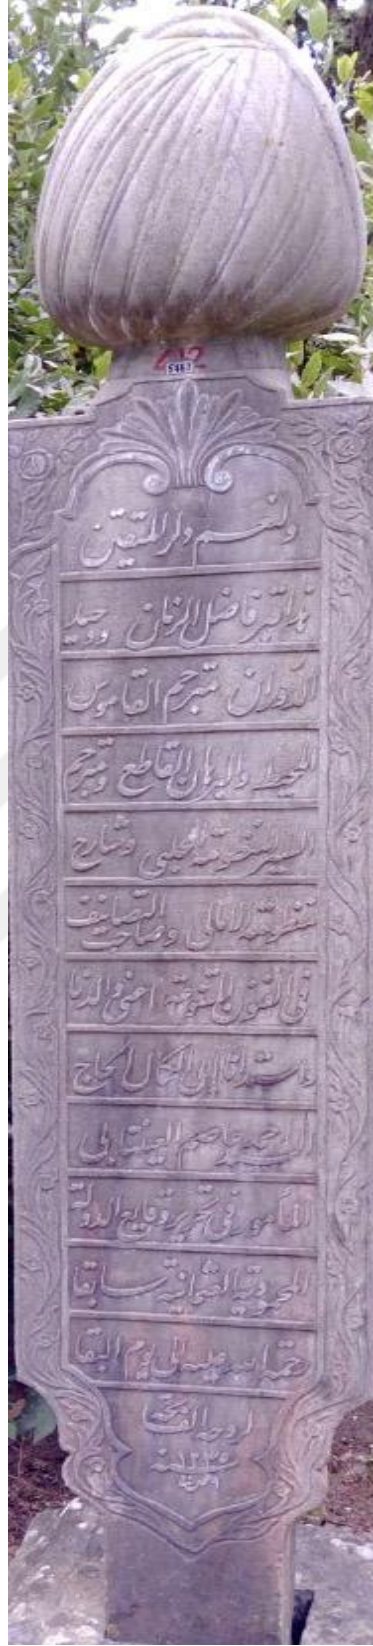 412
5463
ولنعم دار المتقين
هذا قبر فاضل الزمان ووحيد
الدوران مترجم القاموس
المحيط والبرهان القاطع ومترجم
السير المنظومة الحلبي وشارح
منظومة الامالي وصاحب التصانيف
في الفنون المتنوعة اعني
واستاذنا الحاج
السيد احمد عاصم العينتابي
المأمور في تحرير وقايع الدولة
المحروسة العثمانية سابقا
رحمة الله عليه الى يوم البقا
لروحه الفاتحة
سنة ١٢٣٥